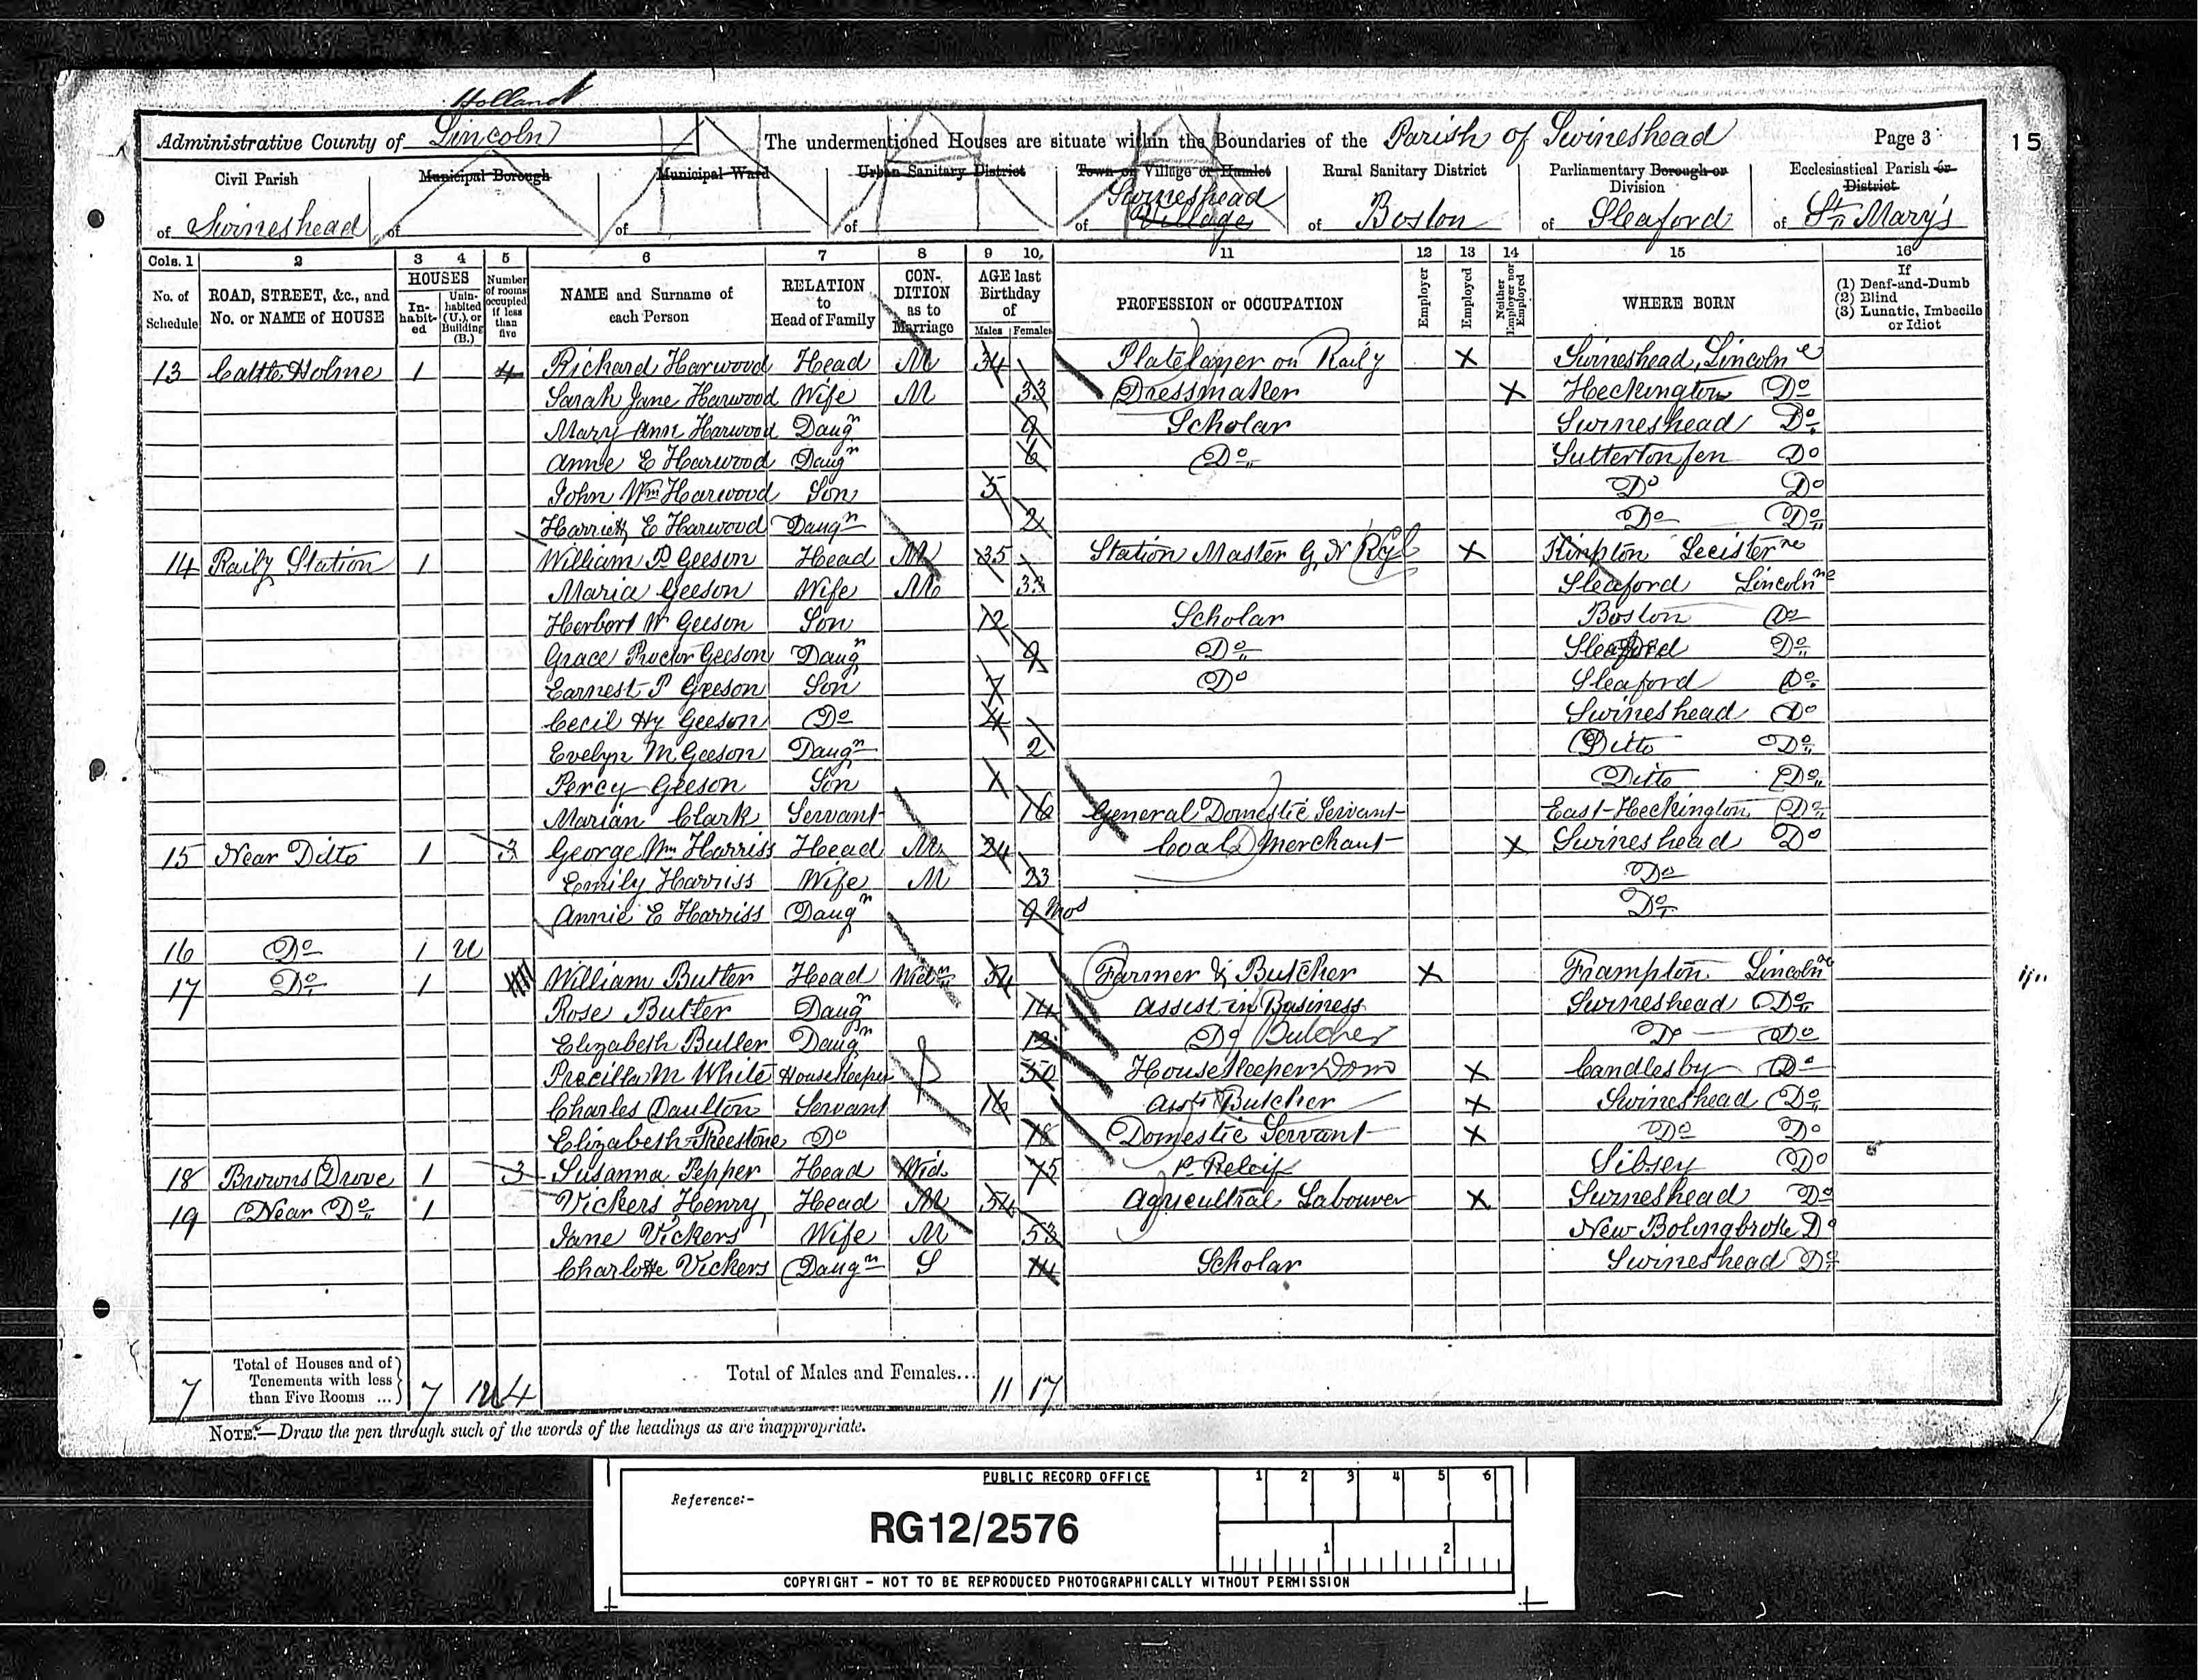 Holland
Administrative County of Lincoln The undermentioned Houses are situate within the Boundaries of the Parish of Swineshead Page 3 15
Civil Parish of Swineshead
Municipal Borough of
Municipal Ward of
Urban Sanitary District of
Town or Village or Hamlet of Swineshead Village
Rural Sanitary District of Boston
Parliamentary Borough or Division of Sleaford
Ecclesiastical Parish or District of St Mary's
Cols. 1 2 3 4 5 6 7 8 9 10 11 12 13 14 15 16
No. of Schedule
ROAD, STREET, &c., and No. or NAME of HOUSE
HOUSES
Inhabited
Uninhabited (U.), or Building (B.)
Number of rooms occupied if less than five
NAME and Surname of each Person
RELATION to Head of Family
CONDITION as to Marriage
AGE last Birthday of
Males Females
PROFESSION or OCCUPATION
Employer
Employed
Neither Employer nor Employed
WHERE BORN
If (1) Deaf-and-Dumb (2) Blind (3) Lunatic, Imbecile or Idiot
13 Cattle Holme 1 4 Richard Harwood Head M 34 Platelayer on Raily X Swineshead, Lincolne
Sarah Jane Harwood Wife M 33 Dressmaker X Heckington Do
Mary Ann Harwood Daugr 9 Scholar Swineshead Do
Anne E Harwood Daugr 6 Do Sutterton fen Do
John Wm Harwood Son 5 Do Do
Harriett E Harwood Daugr 2 Do Do
14 Raily Station 1 William P Geeson Head M 35 Station Master G N Ryl X Leicester
Maria Geeson Wife M Sleaford Lincolnre
Herbert W Geeson Son 12 Scholar Boston Do
Grace Proctor Geeson Daugr 9 Do Sleaford Do
Earnest P Geeson Son 7 Do Sleaford Do
Cecil Hy Geeson Do 4 Swineshead Do
Evelyn M Geeson Daugr 2 Ditto Do
Percy Geeson Son 1 Ditto Do
Marian Clark Servant 16 General Domestic Servant East Heckington Do
15 Near Ditto 1 3 George Wm Harriss Head M 24 Coal Merchant X Swineshead Do
Emily Harriss Wife M 23 Do
Annie E Harriss Daugr 9 Mos Do
16 Do 1 U
17 Do 1 William Butler Head Widr Farmer & Butcher X Frampton Lincolnre
Rose Butler Daugr 14 Assist in Business Swineshead Do
Elizabeth Butler Daugr 12 Do Butcher Do Do
Precilla M White Housekeeper 50 Housekeeper Dom X Candlesby Do
Charles Daulton Servant 16 Asst Butcher X Swineshead Do
Elizabeth Freestone Do 18 Domestic Servant X Do Do
18 Browns Drove 1 3 Susanna Pepper Head Wid 75 P. Releif Sibsey Do
19 Near Do 1 Vickers Henry Head M 54 Agricultral Labourer X Swineshead Do
Jane Vickers Wife M 53 New Bolingbroke Do
Charlotte Vickers Daugr S 14 Scholar Swineshead Do
7 Total of Houses and of Tenements with less than Five Rooms ... 7 1U 4 Total of Males and Females... 11 17
NOTE.—Draw the pen through such of the words of the headings as are inappropriate.
PUBLIC RECORD OFFICE 1 2 3 4 5 6
Reference:-
RG12/2576
1 2
COPYRIGHT - NOT TO BE REPRODUCED PHOTOGRAPHICALLY WITHOUT PERMISSION